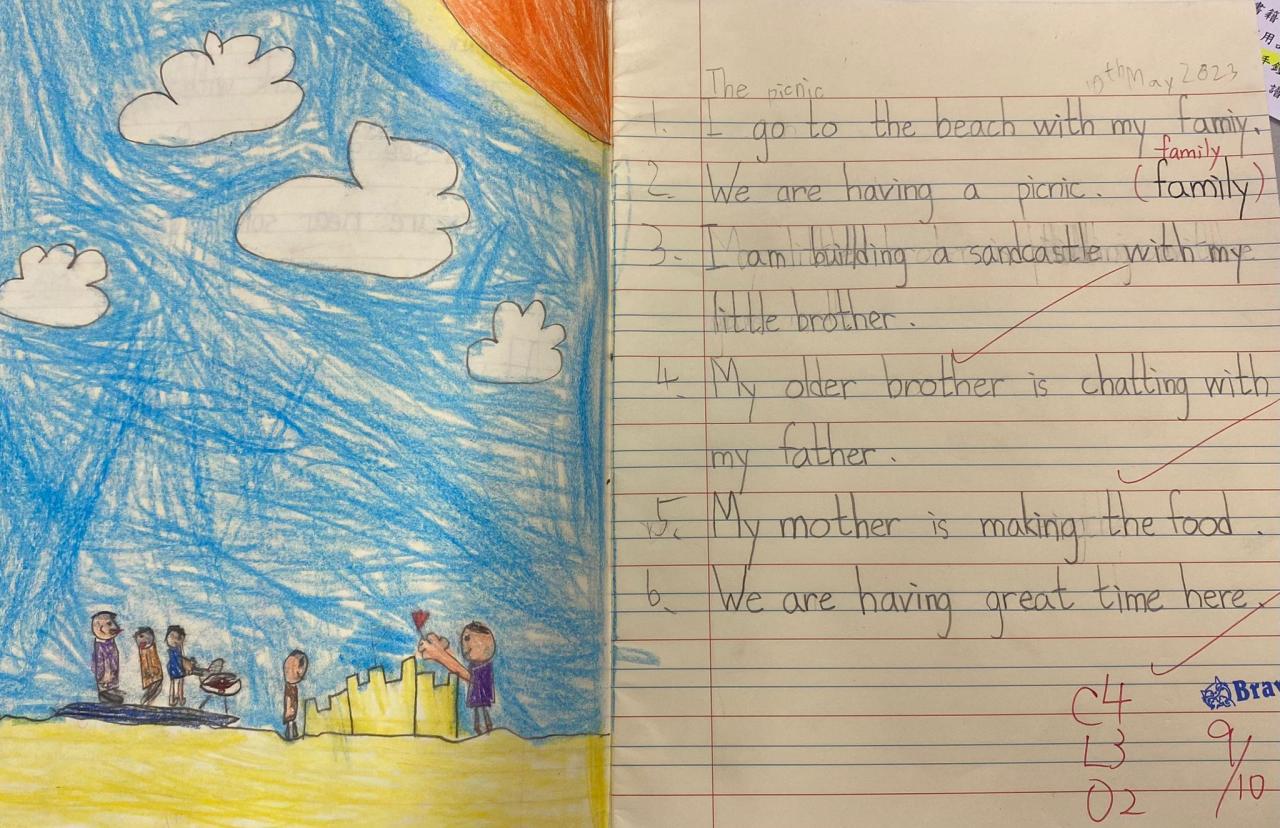 The picnic 10th May 2023
1. I go to the beach with my famiy.
family
2. We are having a picnic. (family)
3. I am building a sandcastle with my
little brother.
4. My older brother is chatting with
my father.
5. My mother is making the food.
6. We are having great time here.
C4 Brav
L3 9/10
O2
書籍
用